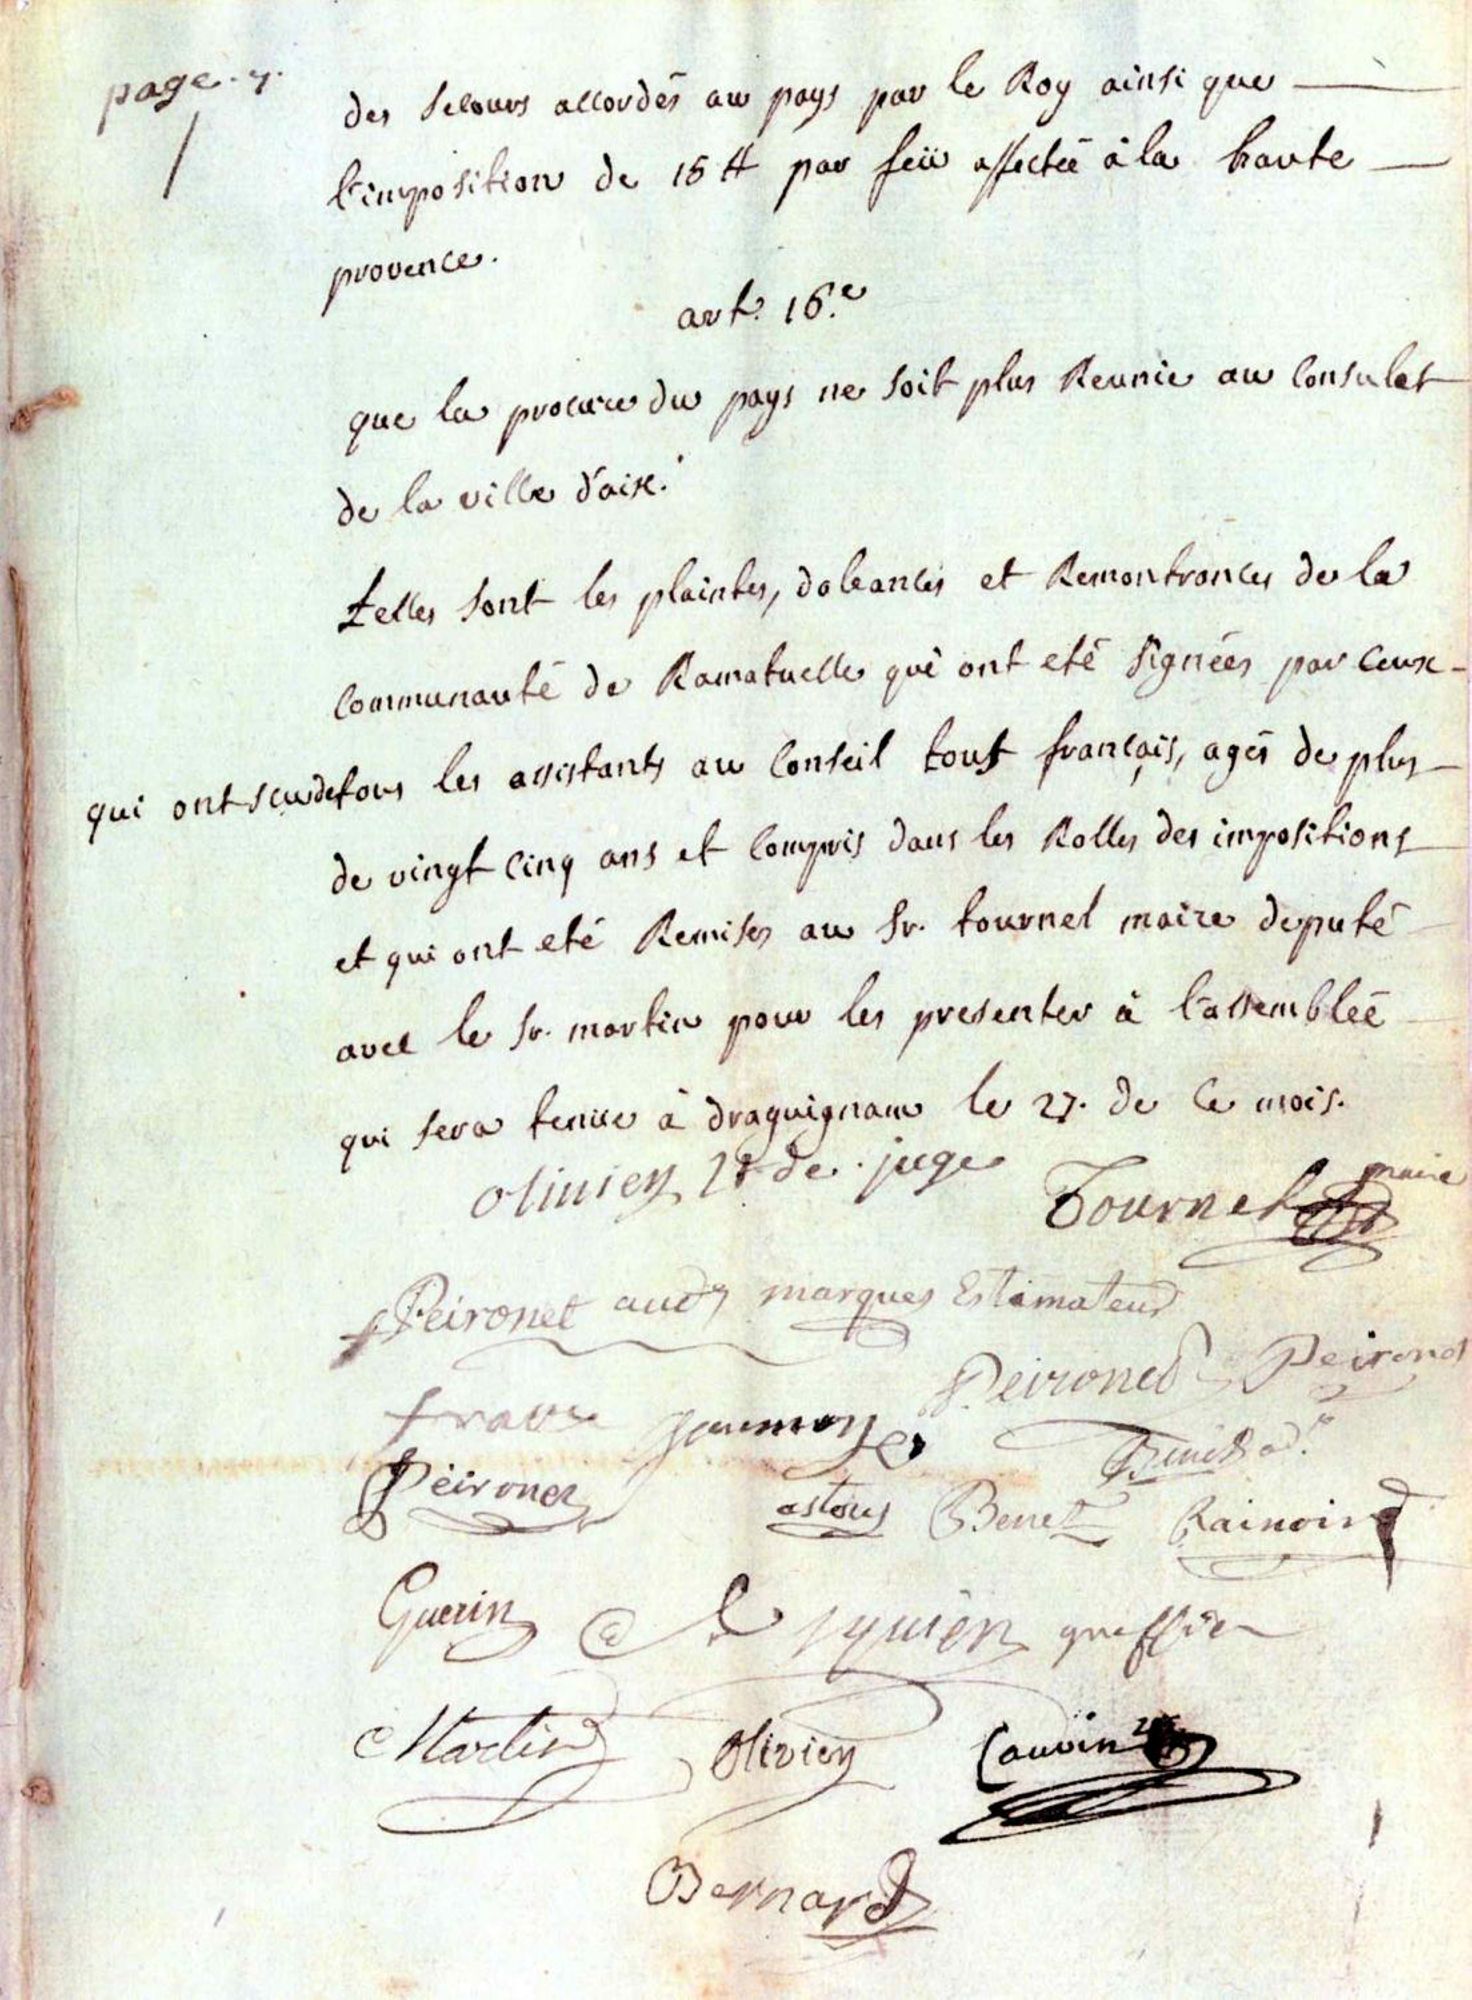 page. 7.
des secours accordés au pays par le Roy ainsi que
l'imposition de 15 ₶ par feü affectée à la haute
provence.
art. 16.e
que la procure du pays ne soit plus Reunie au Consulat
de la ville d'aix.
telles sont les plaintes, doleances et Remontrances de la
Communauté de Ramatuelle qui ont eté signées par Ceux
qui ont sçu de tous les assistants au Conseil tous français, agés de plus
de vingt cinq ans et Compris dans les Rolles des impositions
et qui ont eté Remises au Sr. tournel maire deputé
avec le Sr. martin pour les presenter à l'assemblée
qui sera tenue à draguignan le 27. de Ce mois.
olivier Lt de juge Tournel maire
Peironet audr marques Estimateur
Peironet Peironet
Peironet astous Benet Rainoird
Guerin
Martin Olivier Cauvin
Bernard